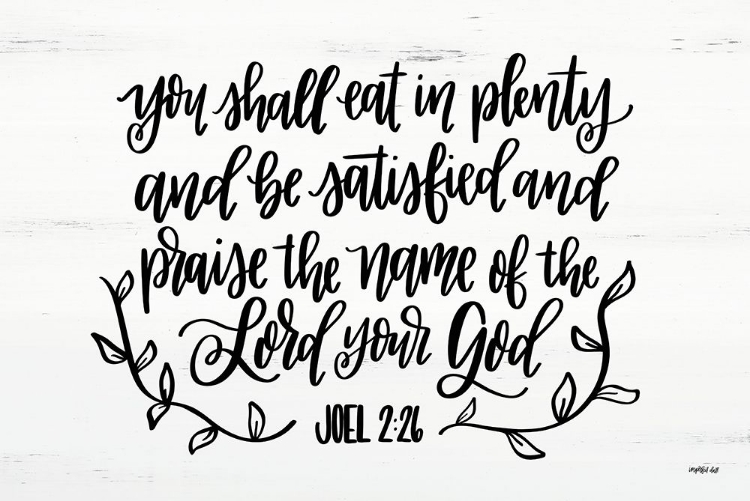 you shall eat in plenty
and be satisfied and
praise the name of the
Lord your God
JOEL 2:26